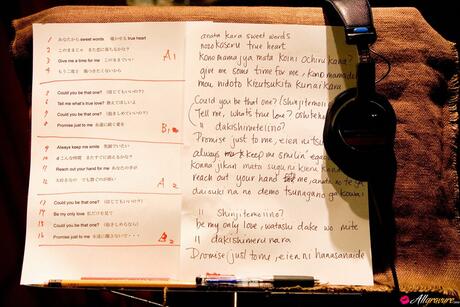 1 あなたから sweet words 覗かせる true heart
2 このままじゃ また恋に落ちるかな?
3 Give me a time for me このままで
4 もう二度と 傷つきたくないから
A1
5 Could you be that one? 信じてもいいの?
6 Tell me what's true love? 教えてほしいよ
7 Could you be that one? 抱きしめていいの?
8 Promise just to me 永遠に続く愛を
B1
9 Always keep me smile
10 こんな時間 またすぐに消えるかな?
11 Reach out your hand for me あなたの手が
12 大好きなの でも繋ぐのが怖い
A2
13 Could you be that one? 信じてもいいの?
14 Be my only love 私だけを見て
15 Could you be that one? 抱きしめるなら
16 Promise just to me 永遠に離さないで・・・
B2
anata kara sweet words
nozokaseru true heart
Konomamajya mata koini ochiru kana?
give me some time for me, konomamade
mou nidoto kizutsukitakunai kara
Could you be that one? (shinjitemoii
Tell me, what's true love? oshiete
〃 dakishimeteiino?
Promise just to me, eien ni
always keep me smilin'
konna jikan mata suguni kieru Kana
reach out your hand for me, anata no te ga
daisuki na no demo tsunagu no ga kowai
〃 Shinjitemoiino?
be my only love, watashi dake wo mite
〃 dakishimeru nara
Promise just to me, eien ni hanasanaide
Allgravure.com